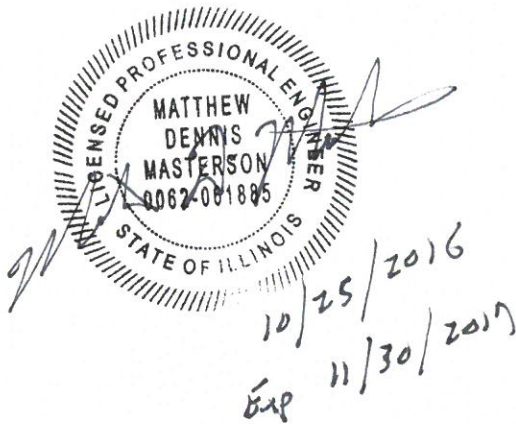 LICENSED PROFESSIONAL ENGINEER
MATTHEW
DENNIS
MASTERSON
0062-061885
STATE OF ILLINOIS
10/25/2016
Exp 11/30/2017